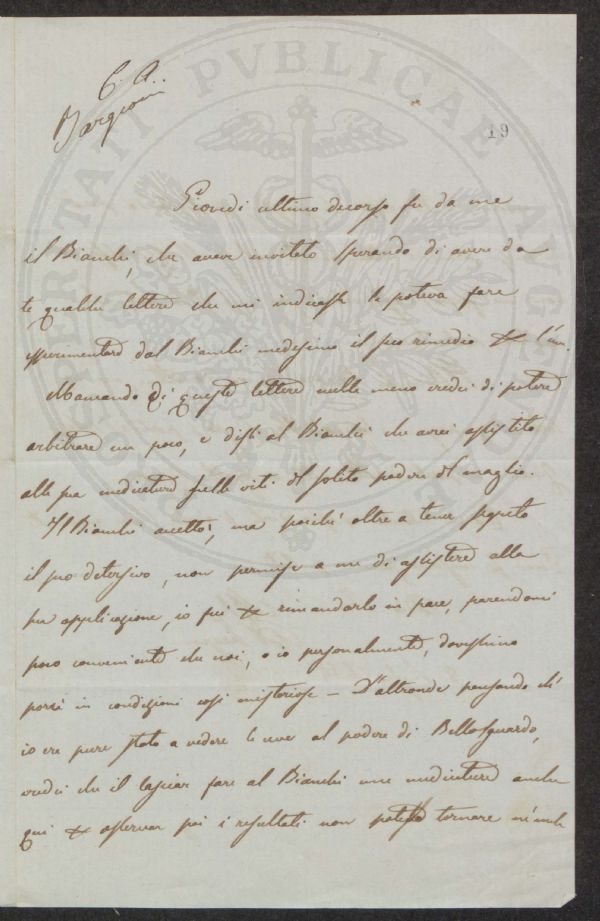 C. A.
Targioni
19
Giovedì ultimo decorso fu da me
il Bianchi, che avevo invitato sperando di avere da
te qualche lettera che mi indicasse se poteva fare
esperimentare dal Bianchi medesimo il suo rimedio
Mancando di queste lettere nulla meno credei di potere
arbitrare un poco, e dissi al Bianchi che avrei assistito
alla sua medicatura sulle viti del solito podere del maglio.
Il Bianchi accettò, ma poiché oltre a tener segreto
il suo detersivo, non permise a me di assistere alla
sua applicazione, io fui x rimandarlo in pace, parendomi
poco conveniente che noi, o io personalmente, dovessimo
porci in condizioni così misteriose — D'altronde pensando ch'
io ero pure stato a vedere le uve al podere di Bellosguardo,
credei che il lasciar fare al Bianchi una medicatura anche
qui x osservar poi i resultati non potesse tornare
PROSPERITATI PVBLICAE AVGENDAE